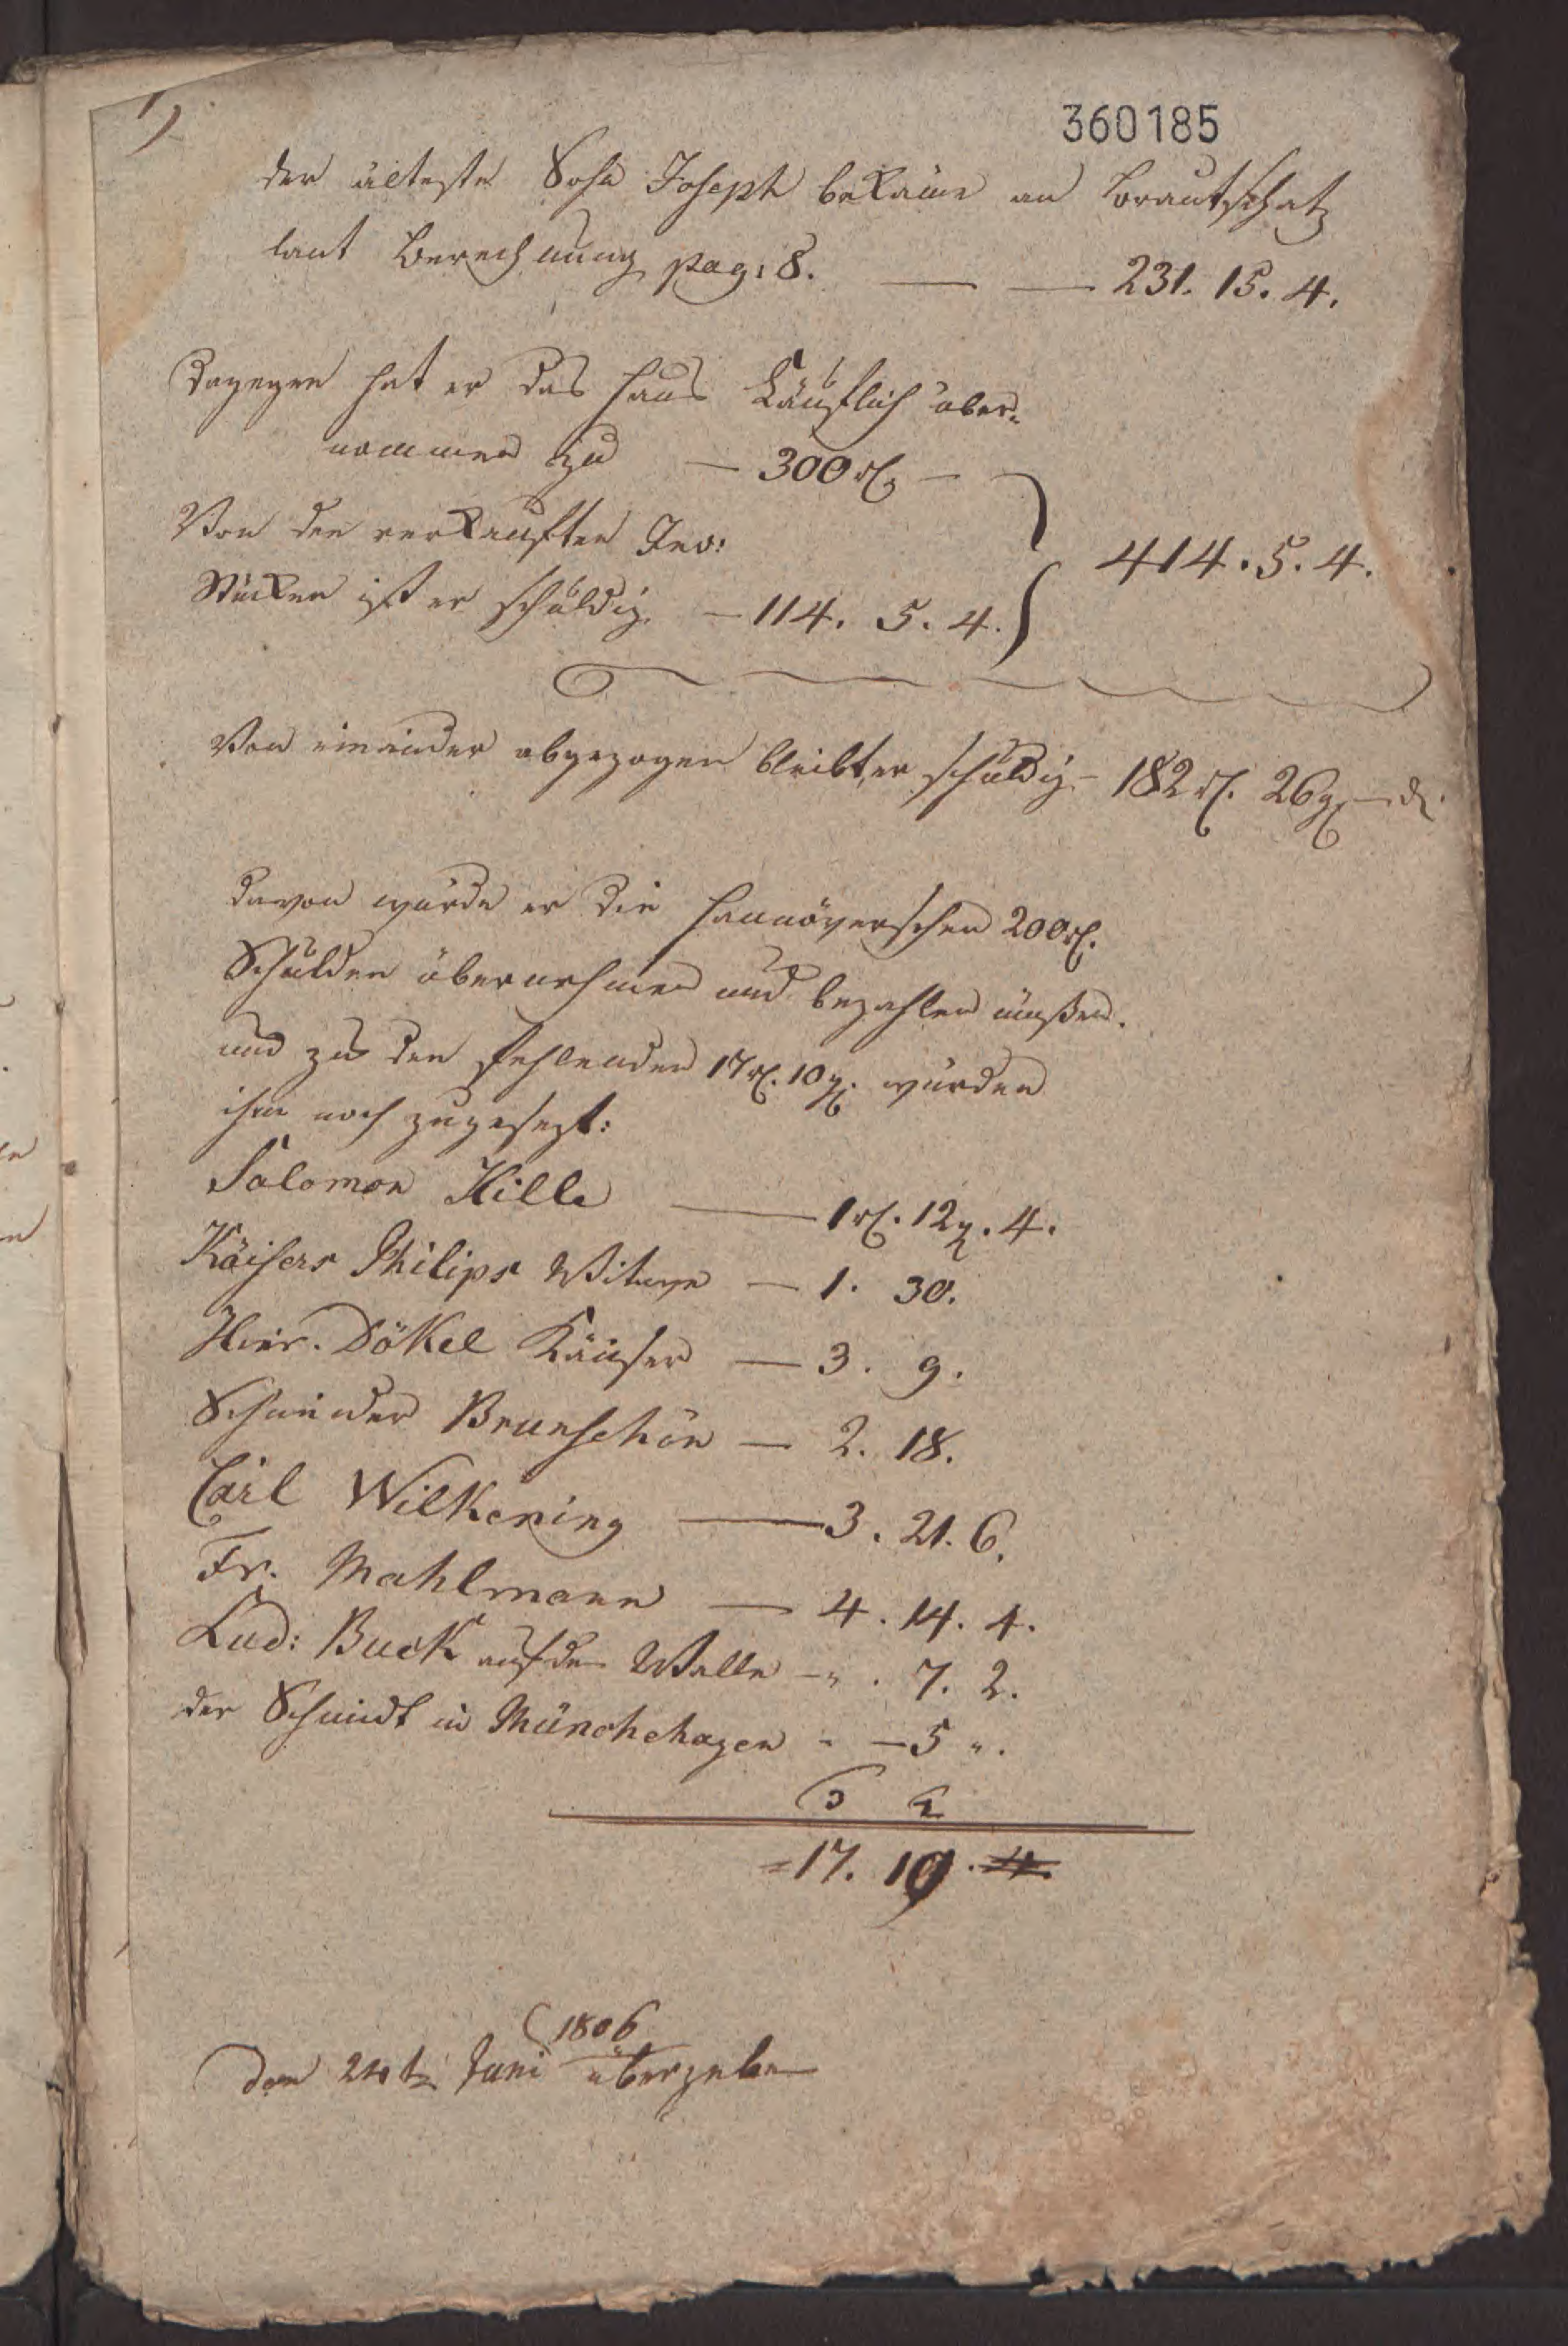 1)
360185
der älteste Sohn Joseph bekäme an Brautschatz
laut Berechnung pag: 8. — — 231. 15. 4.
Dagegen hat er das Haus Käuflich über-
nommen zu — 300 rl. —
Von den verkauften Inv:
Stücken ist er schuldig — 114. 5. 4. } 414. 5. 4.
Von einander abgezogen bleibt er schuldig — 182 rl. 26 g — d.
davon würde er die Hannöverschen 200 rl.
Schulden übernehmen und bezahlen müßen.
und zu den fehlenden 17 rl. 10 g. würden
ihm noch zugesezt:
Salomon Hille — 1 rl. 12 g. 4.
Käisers Philips Witwe — 1. 30.
Hinr. Dökel Häuser — 3. 9.
Schneider Brunschön — 2. 18.
Carl Wilkening — 3. 21. 6.
Fr. Mahlmann — 4. 14. 4.
Lud: Buck auf den Walle — " . 7. 2.
der Schmidt in Münchehagen " — 5 ".
= 17. 10. 4.
1806
den 24t Juni übergeben